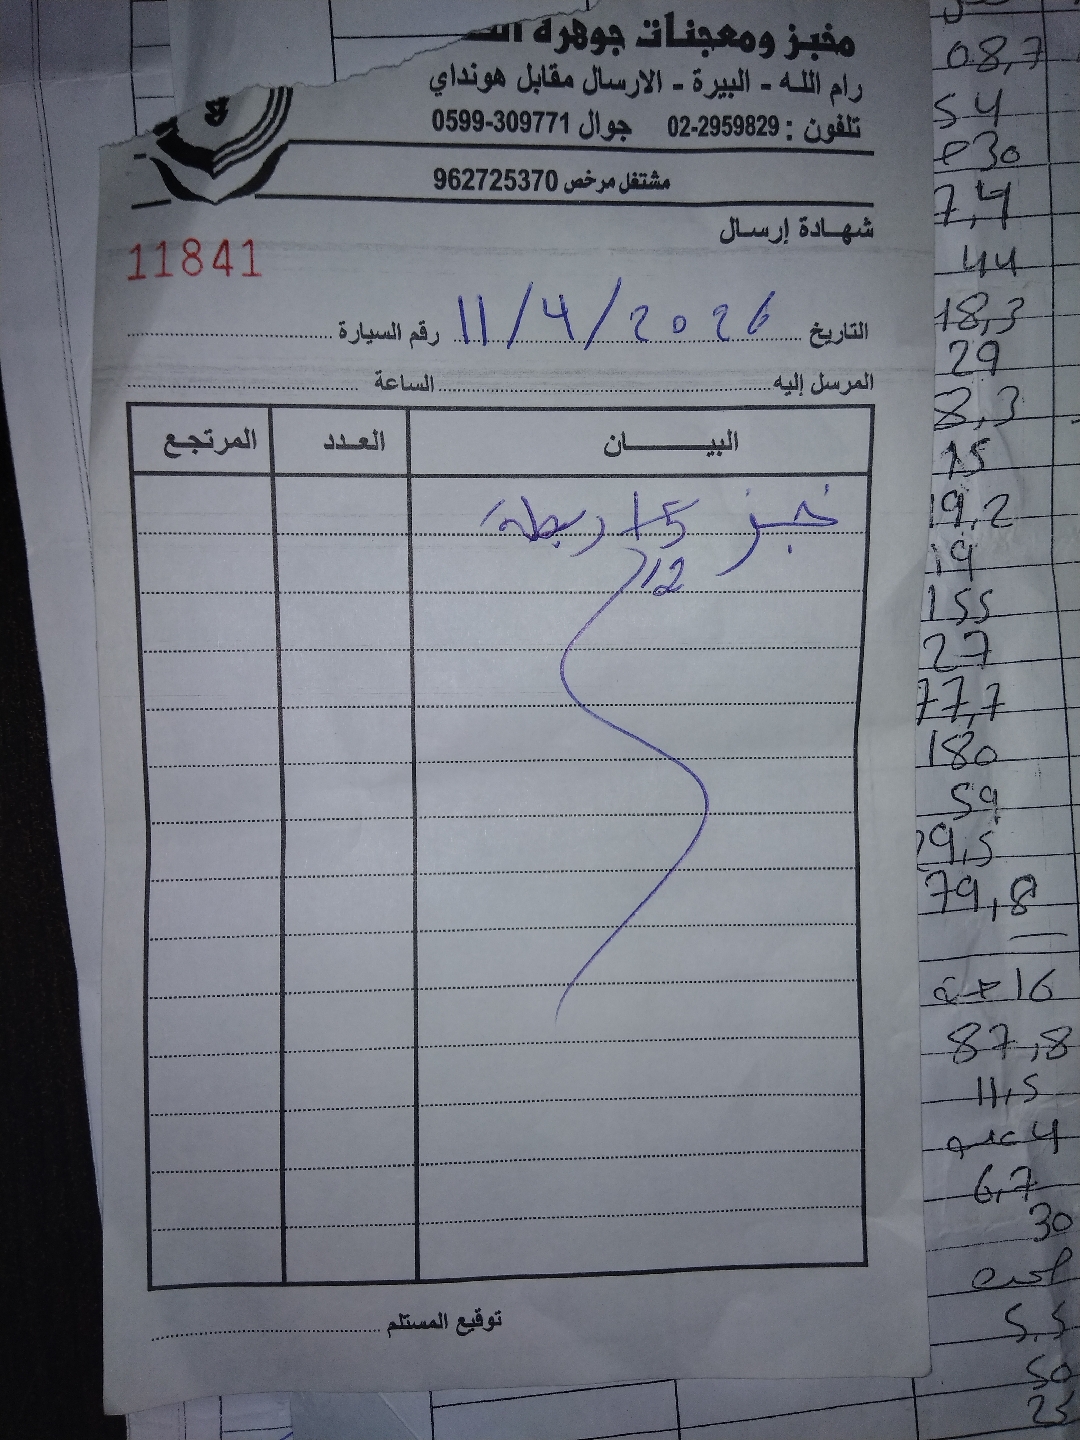 مخبز ومعجنات جوهرة
رام الله - البيرة - الارسال مقابل هونداي
تلفون : 02-2959829 جوال 0599-309771
مشتغل مرخص 962725370
شهادة إرسال
11841
التاريخ 11/4/2026 رقم السيارة
المرسل إليه الساعة
البيــــان العدد المرتجع
خبز 5 ربطة
12
توقيع المستلم
08,7
54
30
7,4
44
18,3
29
8,3
15
19,2
19
155
27
77,7
180
59
29,5
79,8
16
87,8
11,5
4
6,7
30
5,5
50
25